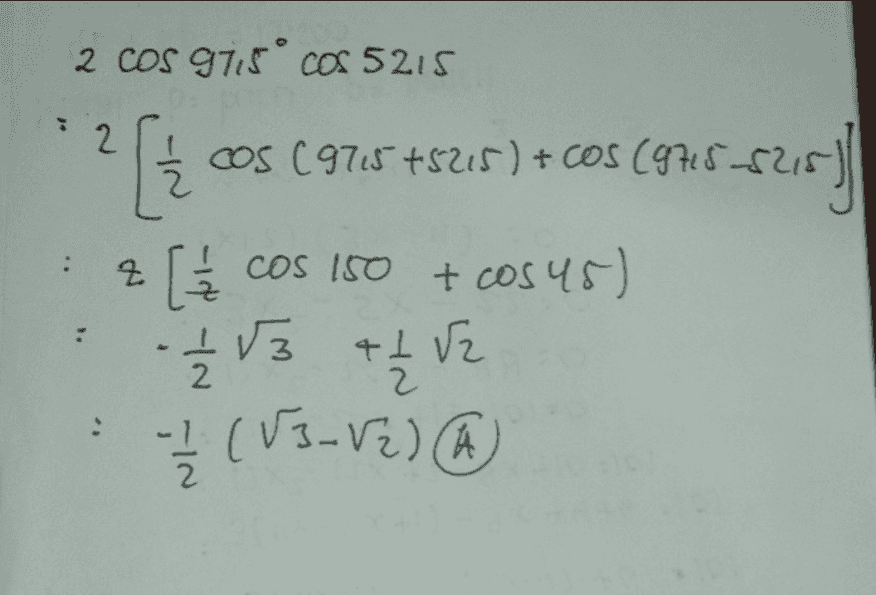 2 cos 97,5° cos 52,5
: 2 [ 1/2 cos (97,5 + 52,5) + cos (97,5 - 52,5)]
: 2 [ 1/2 cos 150 + cos 45)
: - 1/2 √3 + 1/2 √2
: - 1/2 (√3 - √2) A